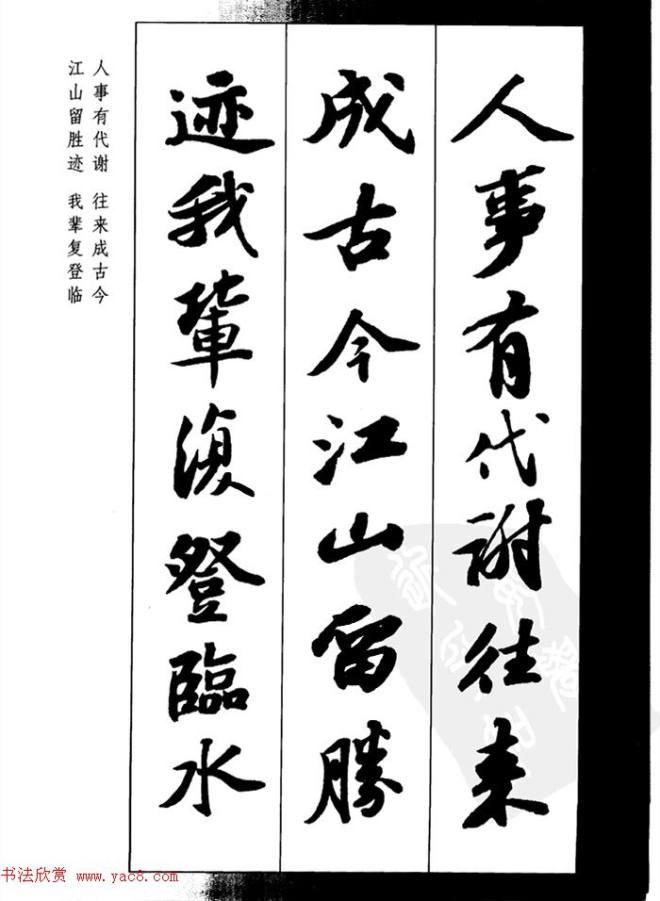 人事有代谢往来
成古今江山留勝
迹我輩復登臨水
人事有代谢 往来成古今
江山留胜迹 我辈复登临
书法欣赏 www.yac8.com